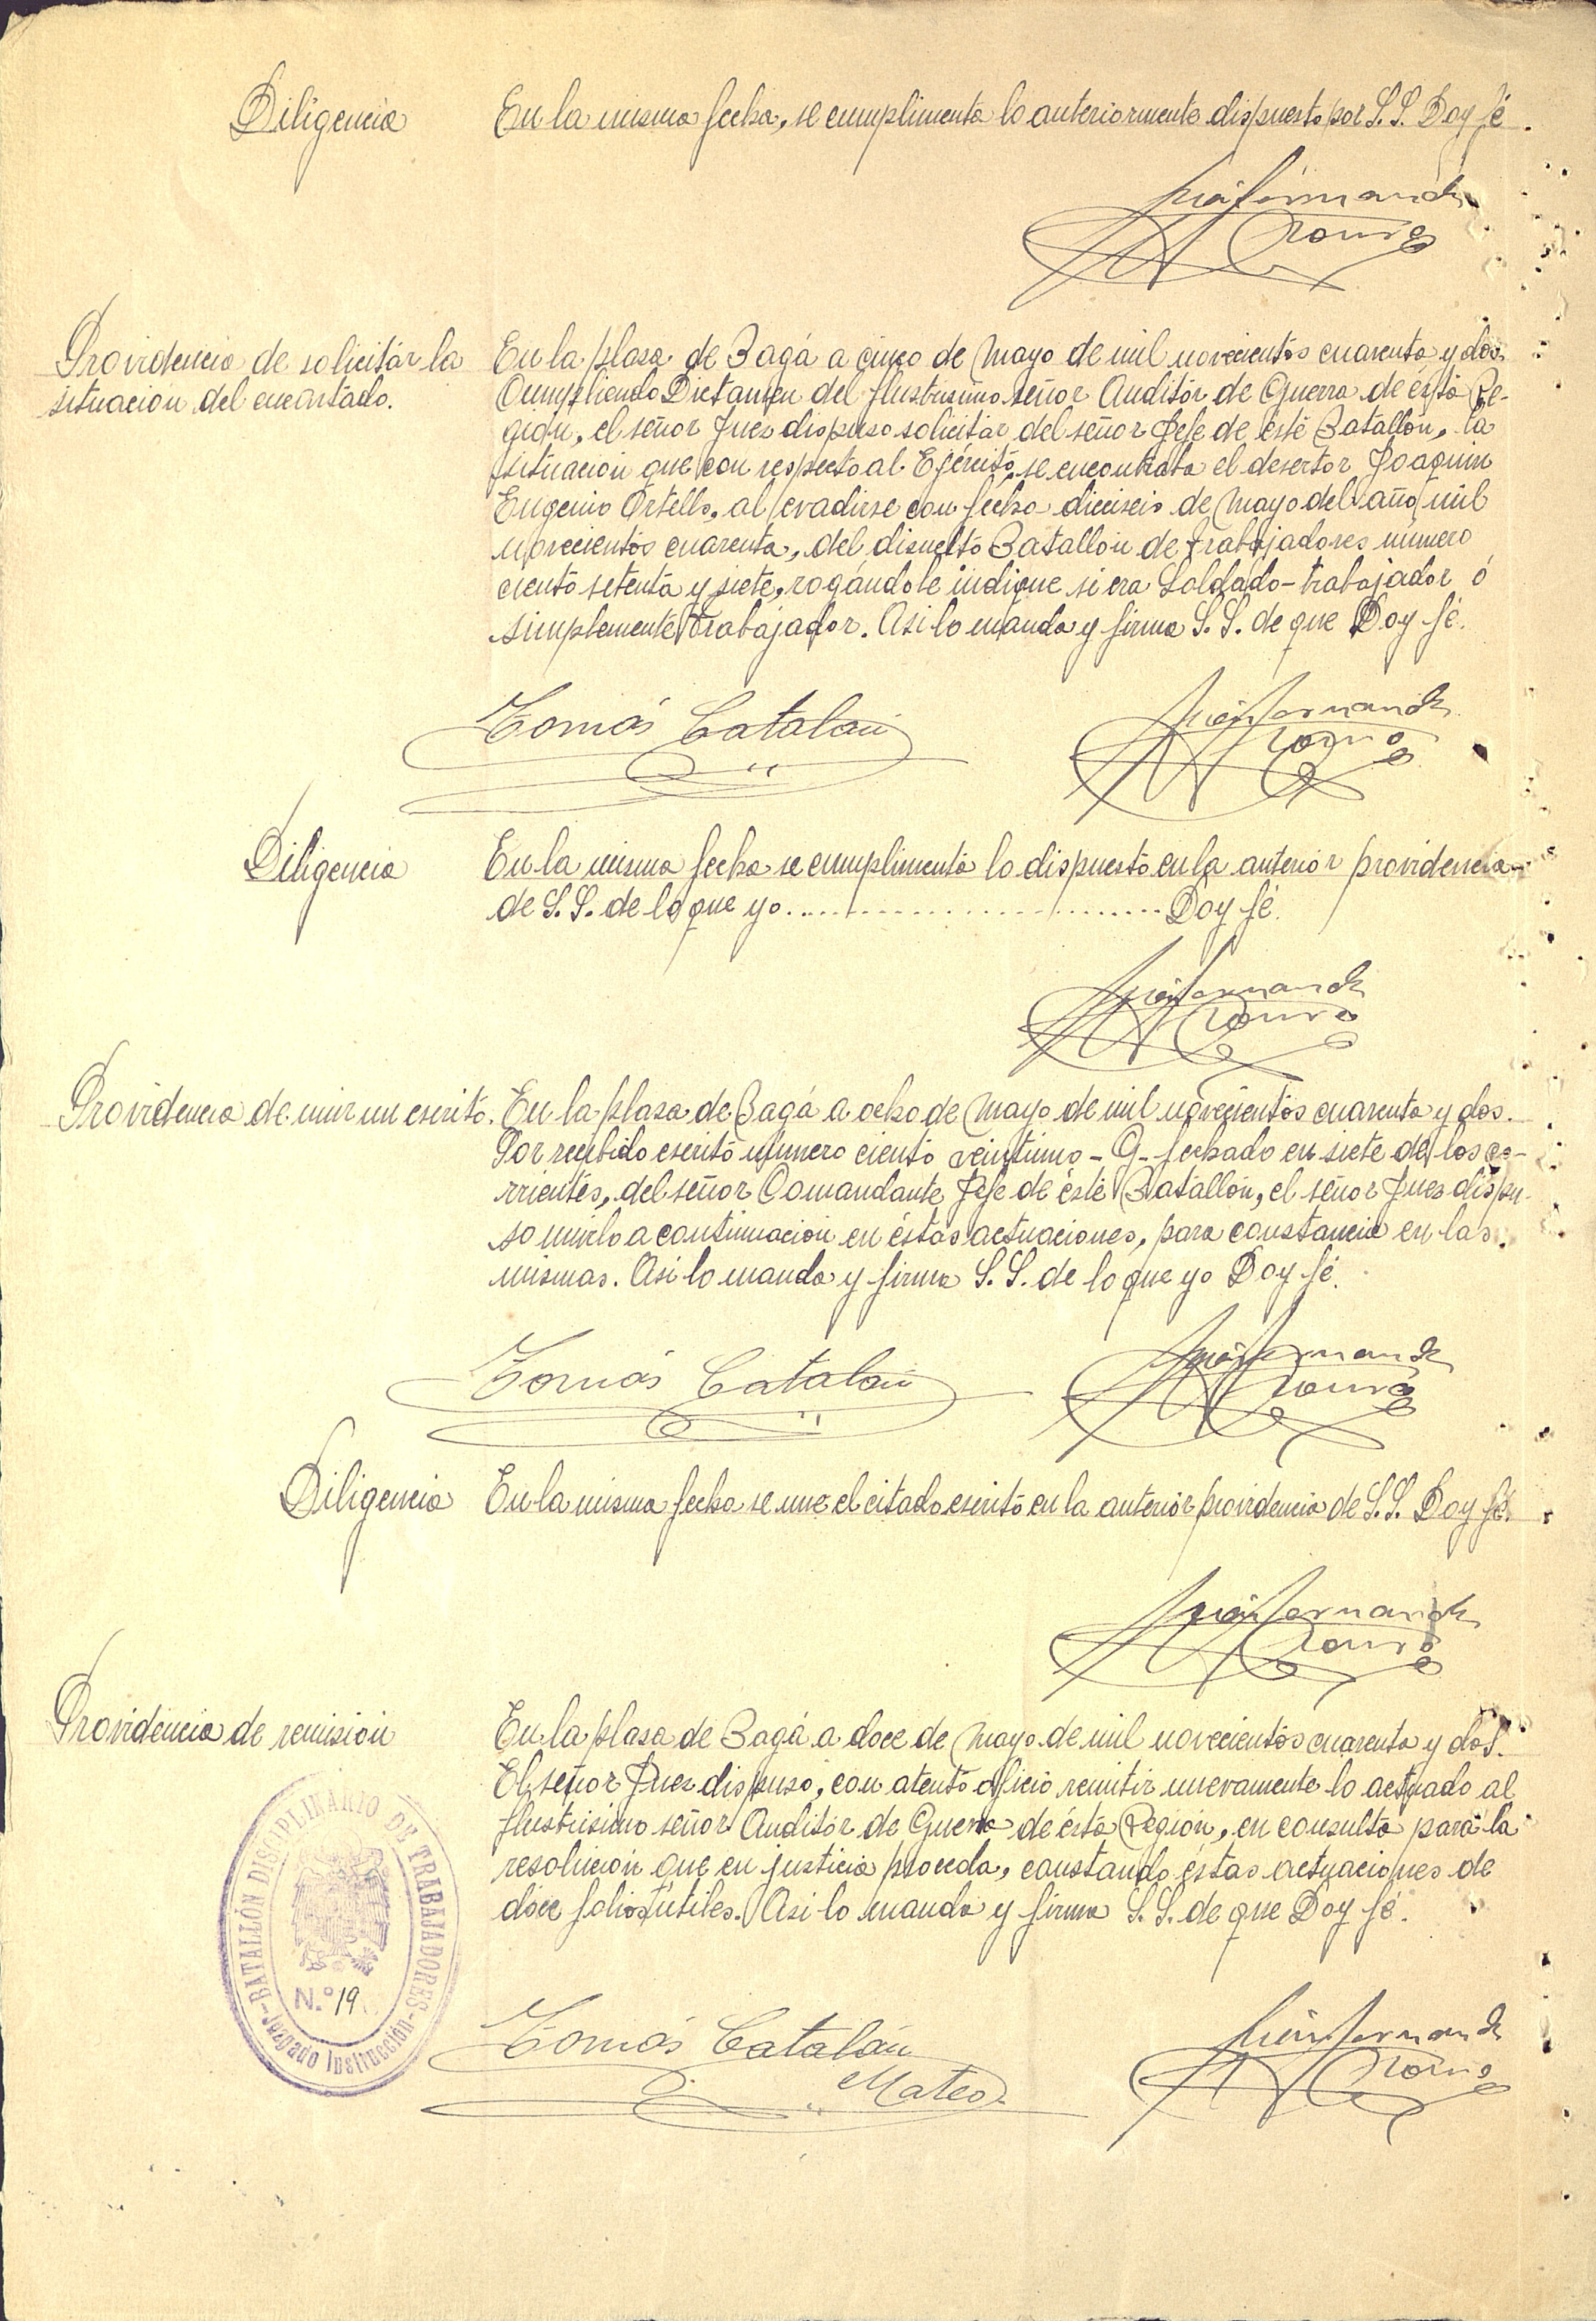 Diligencia
En la misma fecha, se cumplimenta lo anteriormente dispuesto por S.S. Doy fé.
Providencia de solicitár la
situación del encartado.
En la plasa de Bagá a cinco de Mayo de mil novecientos cuarenta y dos.
Cumpliendo Dictamen del Ilustrisimo señor Auditór de Guerra de ésta Re-
gión, el señor Jues dispuso solicitár del señor Jefe de éste Batallón, la
situación que con respecto al Ejército, se encontraba el desertor Joaquin
Eugenio Ortells, al evadirse con fecha dieciseis de Mayo del año mil
novecientos cuarenta, del disuelto Batallón de trabajadores número
ciento setenta y siete, rogándole indique si era Soldado-trabajador ó
simplemente trabajador. Asi lo manda y firma S.S. de que Doy fé.
Tomás Catalán
Diligencia
En la misma fecha se cumplimenta lo dispuesto en la anterior providencia
de S.S. de lo que yo.......................... Doy fé.
Providencia de unir un escrito.
En la plasa de Bagá a ocho de Mayo de mil novecientos cuarenta y dos.
Por recibido escrito número ciento veintiuno - G - fechado en siete de los co-
rrientes, del señor Comandante Jefe de éste Batallón, el señor Jues dispu-
so unirlo a continuación en éstas actuaciones, para constancia en las
mismas. Asi lo manda y firma S.S. de lo que yo Doy fé.
Tomás Catalán
Diligencia
En la misma fecha se une el citado escrito en la anterior providencia de S.S. Doy fé.
Providencia de remisión
En la plasa de Bagá a doce de Mayo de mil novecientos cuarenta y dos.
El señor Jues dispuso, con atento oficio remitir nuevamente lo actuado al
Ilustrisimo señor Auditór de Guerra de ésta Región, en consulta para la
resolución que en justicia proceda, constando éstas actuaciones de
dóce folios útiles. Asi lo manda y firma S.S. de que Doy fé.
BATALLÓN DISCIPLINARIO DE TRABAJADORES
N.º 19
Juzgado Instrucción
Tomás Catalán
Mateo